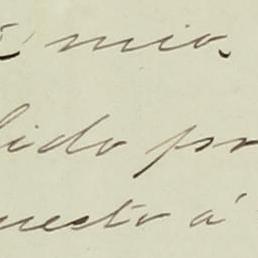 mio.
lido pr
uesto á